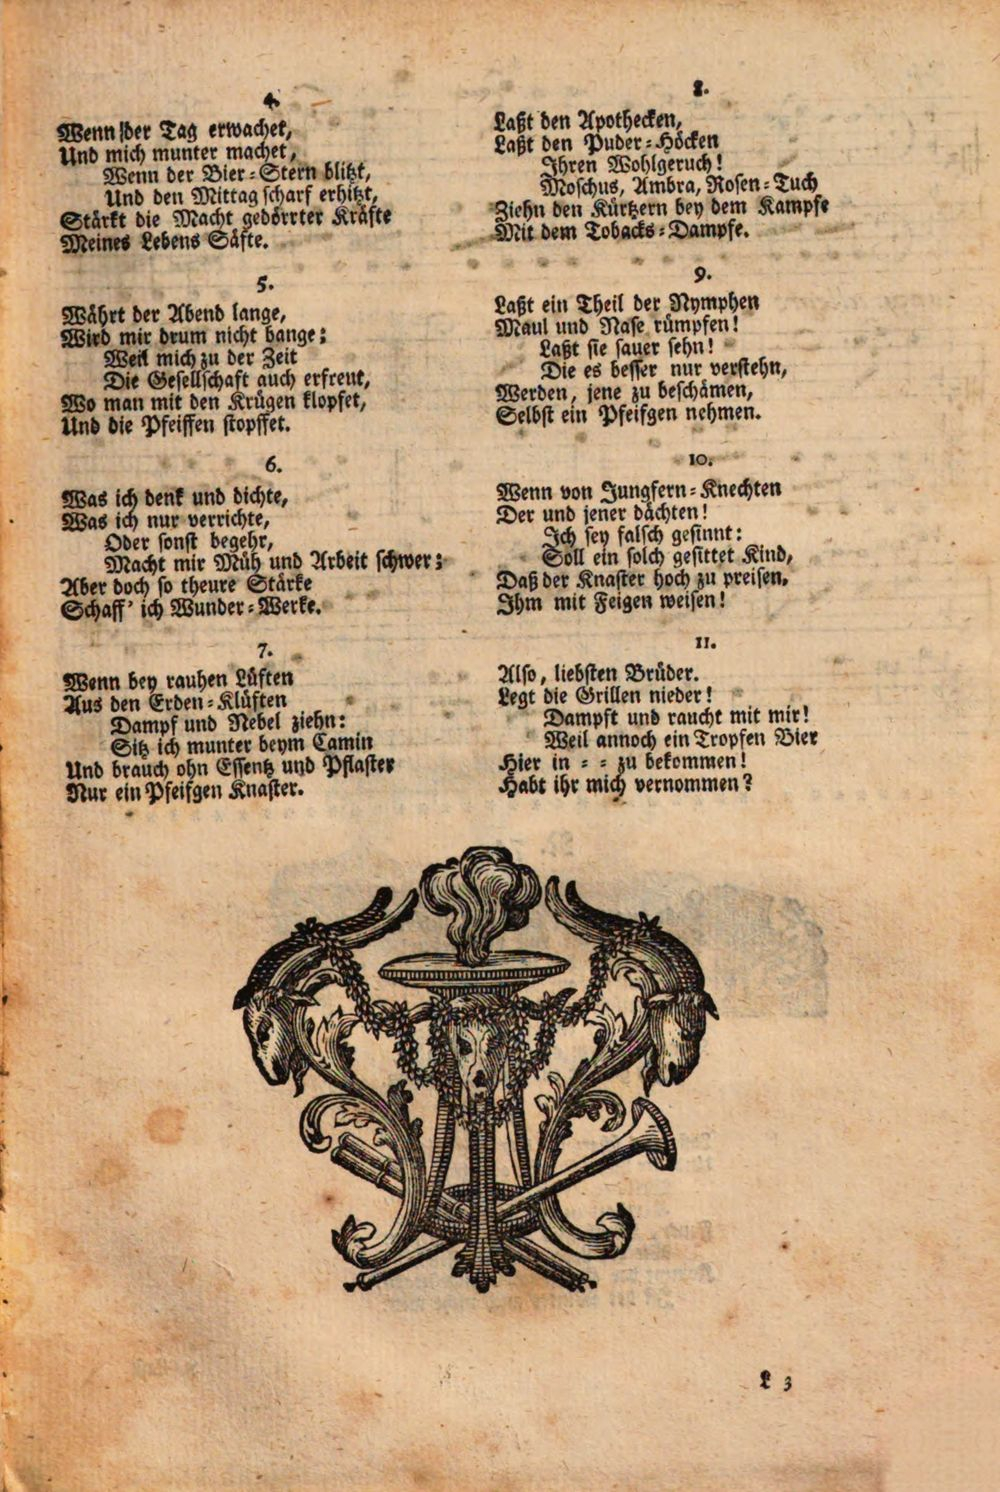 4.
Wenn der Tag erwachet,
Und mich munter machet,
Wenn der Bier-Stern blitzt,
Und den Mittag scharf erhitzt,
Stärkt die Macht gedörrter Kräfte
Meines Lebens Säfte.
5.
Währt der Abend lange,
Wird mir drum nicht bange;
Weil mich zu der Zeit
Die Gesellschaft auch erfreut,
Wo man mit den Krügen klopfet,
Und die Pfeiffen stopffet.
6.
Was ich denk und dichte,
Was ich nur verrichte,
Oder sonst begehr,
Macht mir Müh und Arbeit schwer;
Aber doch so theure Stärke
Schaff' ich Wunder-Werke.
7.
Wenn bey rauhen Lüften
Aus den Erden-Klüften
Dampf und Nebel ziehn:
Sitz ich munter beym Camin
Und brauch ohn Essentz und Pflaster
Nur ein Pfeifgen Knaster.
8.
Laßt den Apothecken,
Laßt den Puder-Höcken
Ihren Wohlgeruch!
Moschus, Ambra, Rosen-Tuch
Ziehn den Kürtzern bey dem Kampfe
Mit dem Tobacks-Dampfe.
9.
Laßt ein Theil der Nymphen
Maul und Nase rümpfen!
Laßt sie sauer sehn!
Die es besser nur verstehn,
Werden, jene zu beschämen,
Selbst ein Pfeifgen nehmen.
10.
Wenn von Jungfern-Knechten
Der und jener dächten!
Ich sey falsch gesinnt:
Soll ein solch gesittet Kind,
Daß der Knaster hoch zu preisen,
Ihm mit Feigen weisen!
11.
Also, liebsten Brüder.
Legt die Grillen nieder!
Dampft und raucht mit mir!
Weil annoch ein Tropfen Bier
Hier in - - zu bekommen!
Habt ihr mich vernommen?
L 3